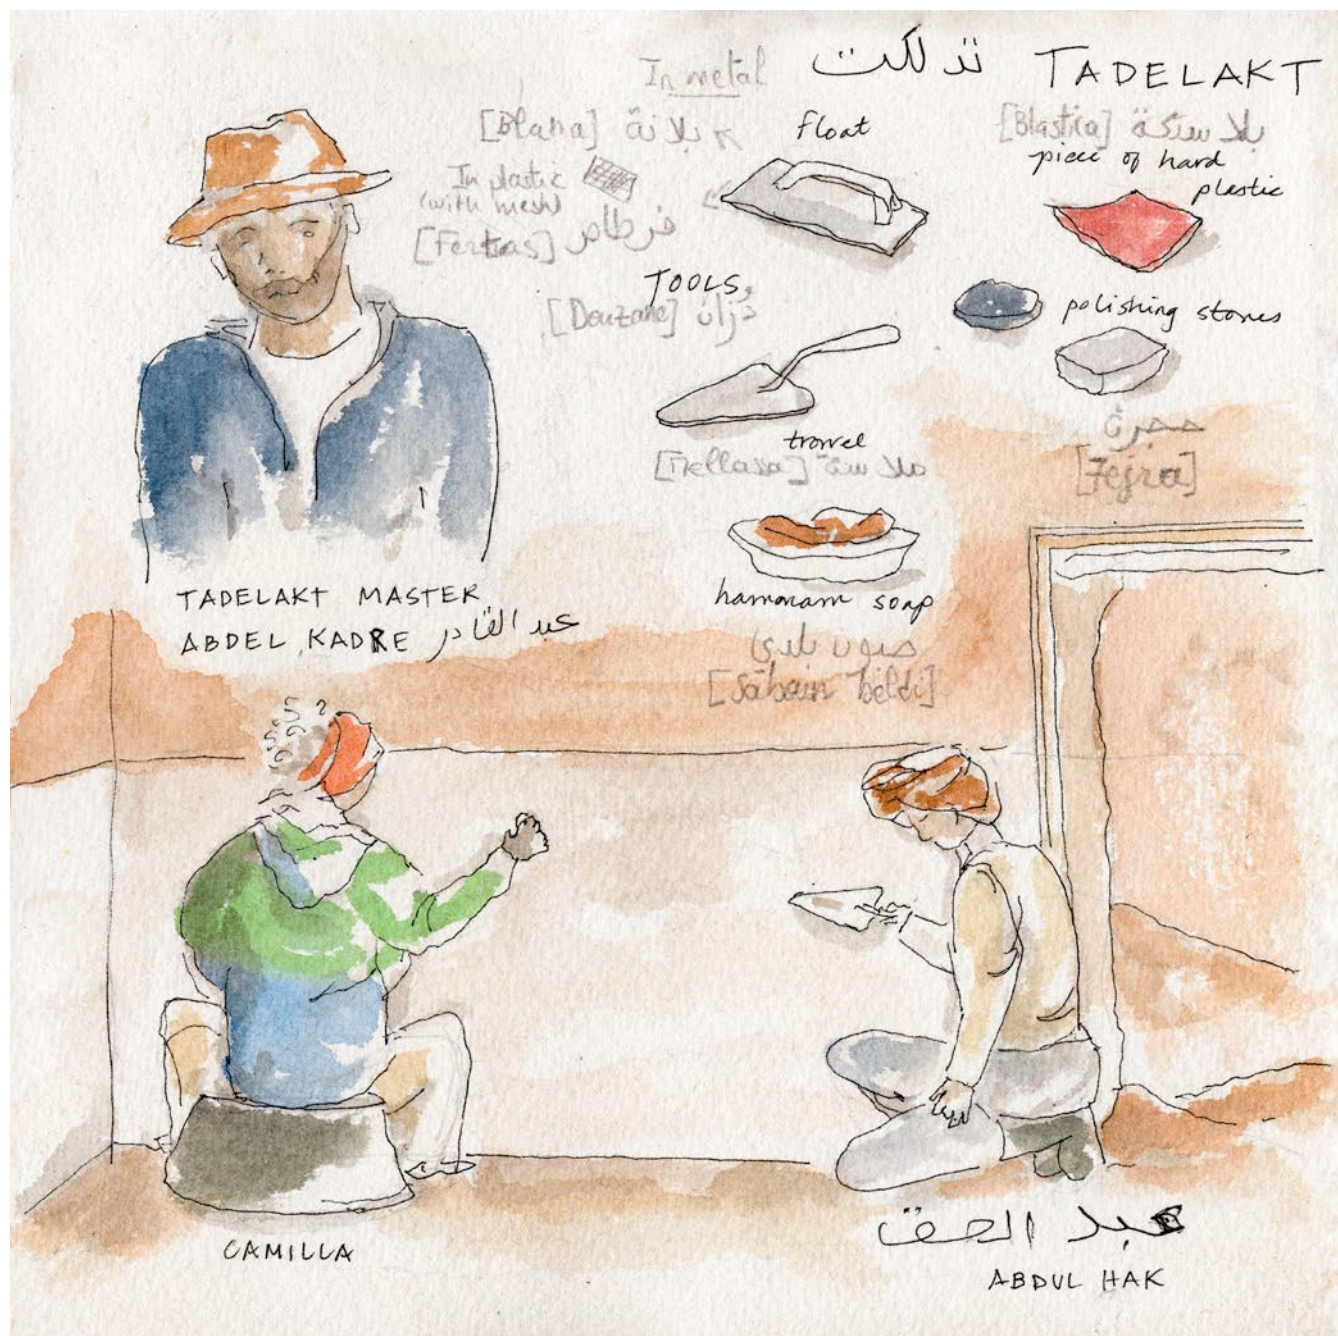 تدلكت TADELAKT
In metal
[Blana] بلانة
float
[Blastica] بلاستكة
piece of hard
plastic
In plastic
(with mesh)
[Fertas] فرطاص
TOOLS
[Douzane] دُزان
polishing stones
حجرة
[7ejra]
trowel
[Mellasa] ملاسة
hammam soap
صبون بلدي
[Saboun beldi]
TADELAKT MASTER
ABDEL KADRE عبد القادر
CAMILLA
عبد الحق
ABDUL HAK